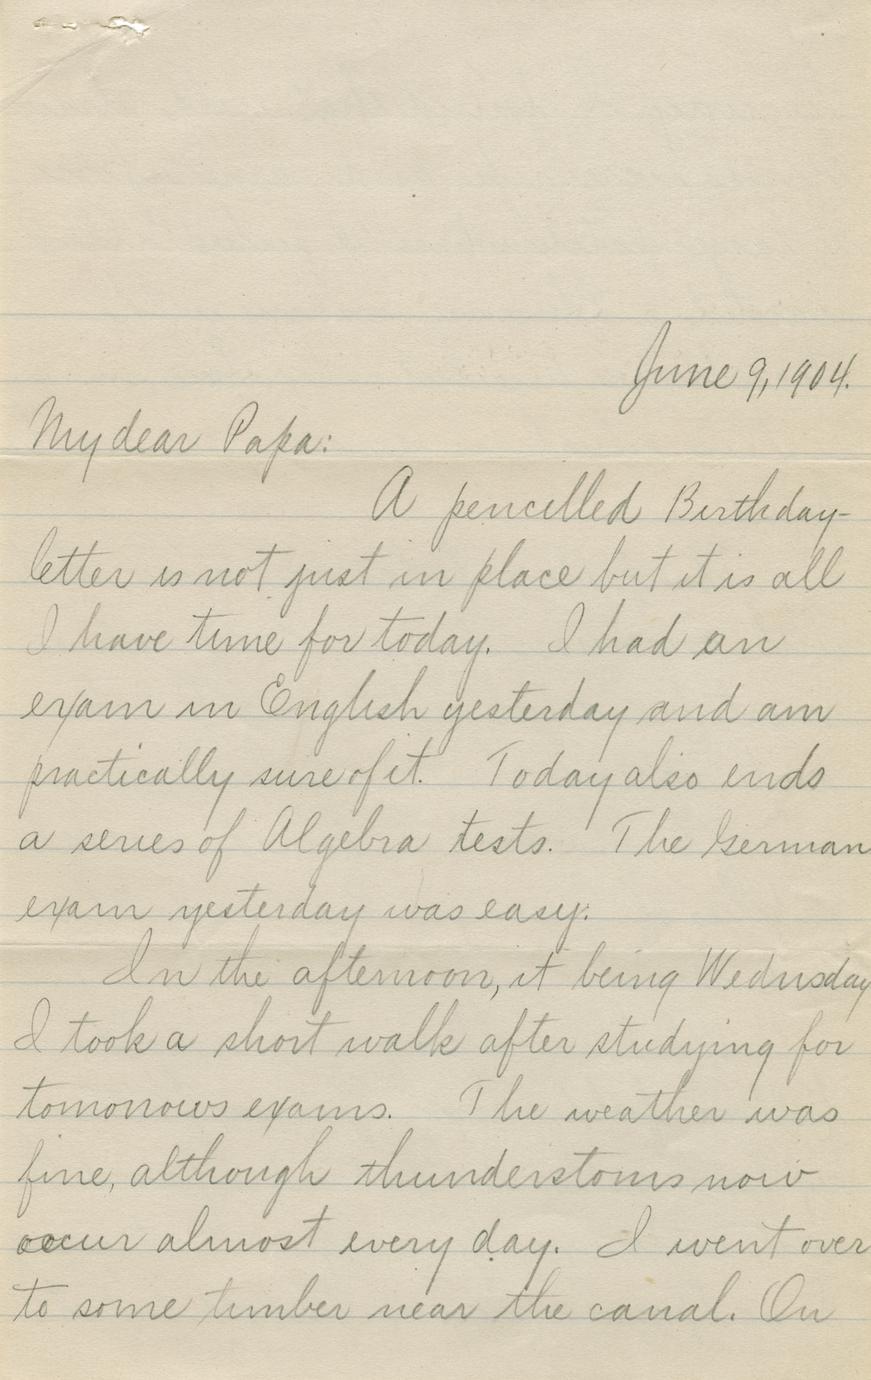 June 9, 1904.
My dear Papa:
A pencilled Birthday-
letter is not just in place but it is all
I have time for today. I had an
exam in English yesterday and am
practically sure of it. Today also ends
a series of Algebra tests. The German
exam yesterday was easy.
In the afternoon, it being Wednsday
I took a short walk after studying for
tomorrows exams. The weather was
fine, although thunderstorms now
occur almost every day. I went over
to some timber near the canal. On